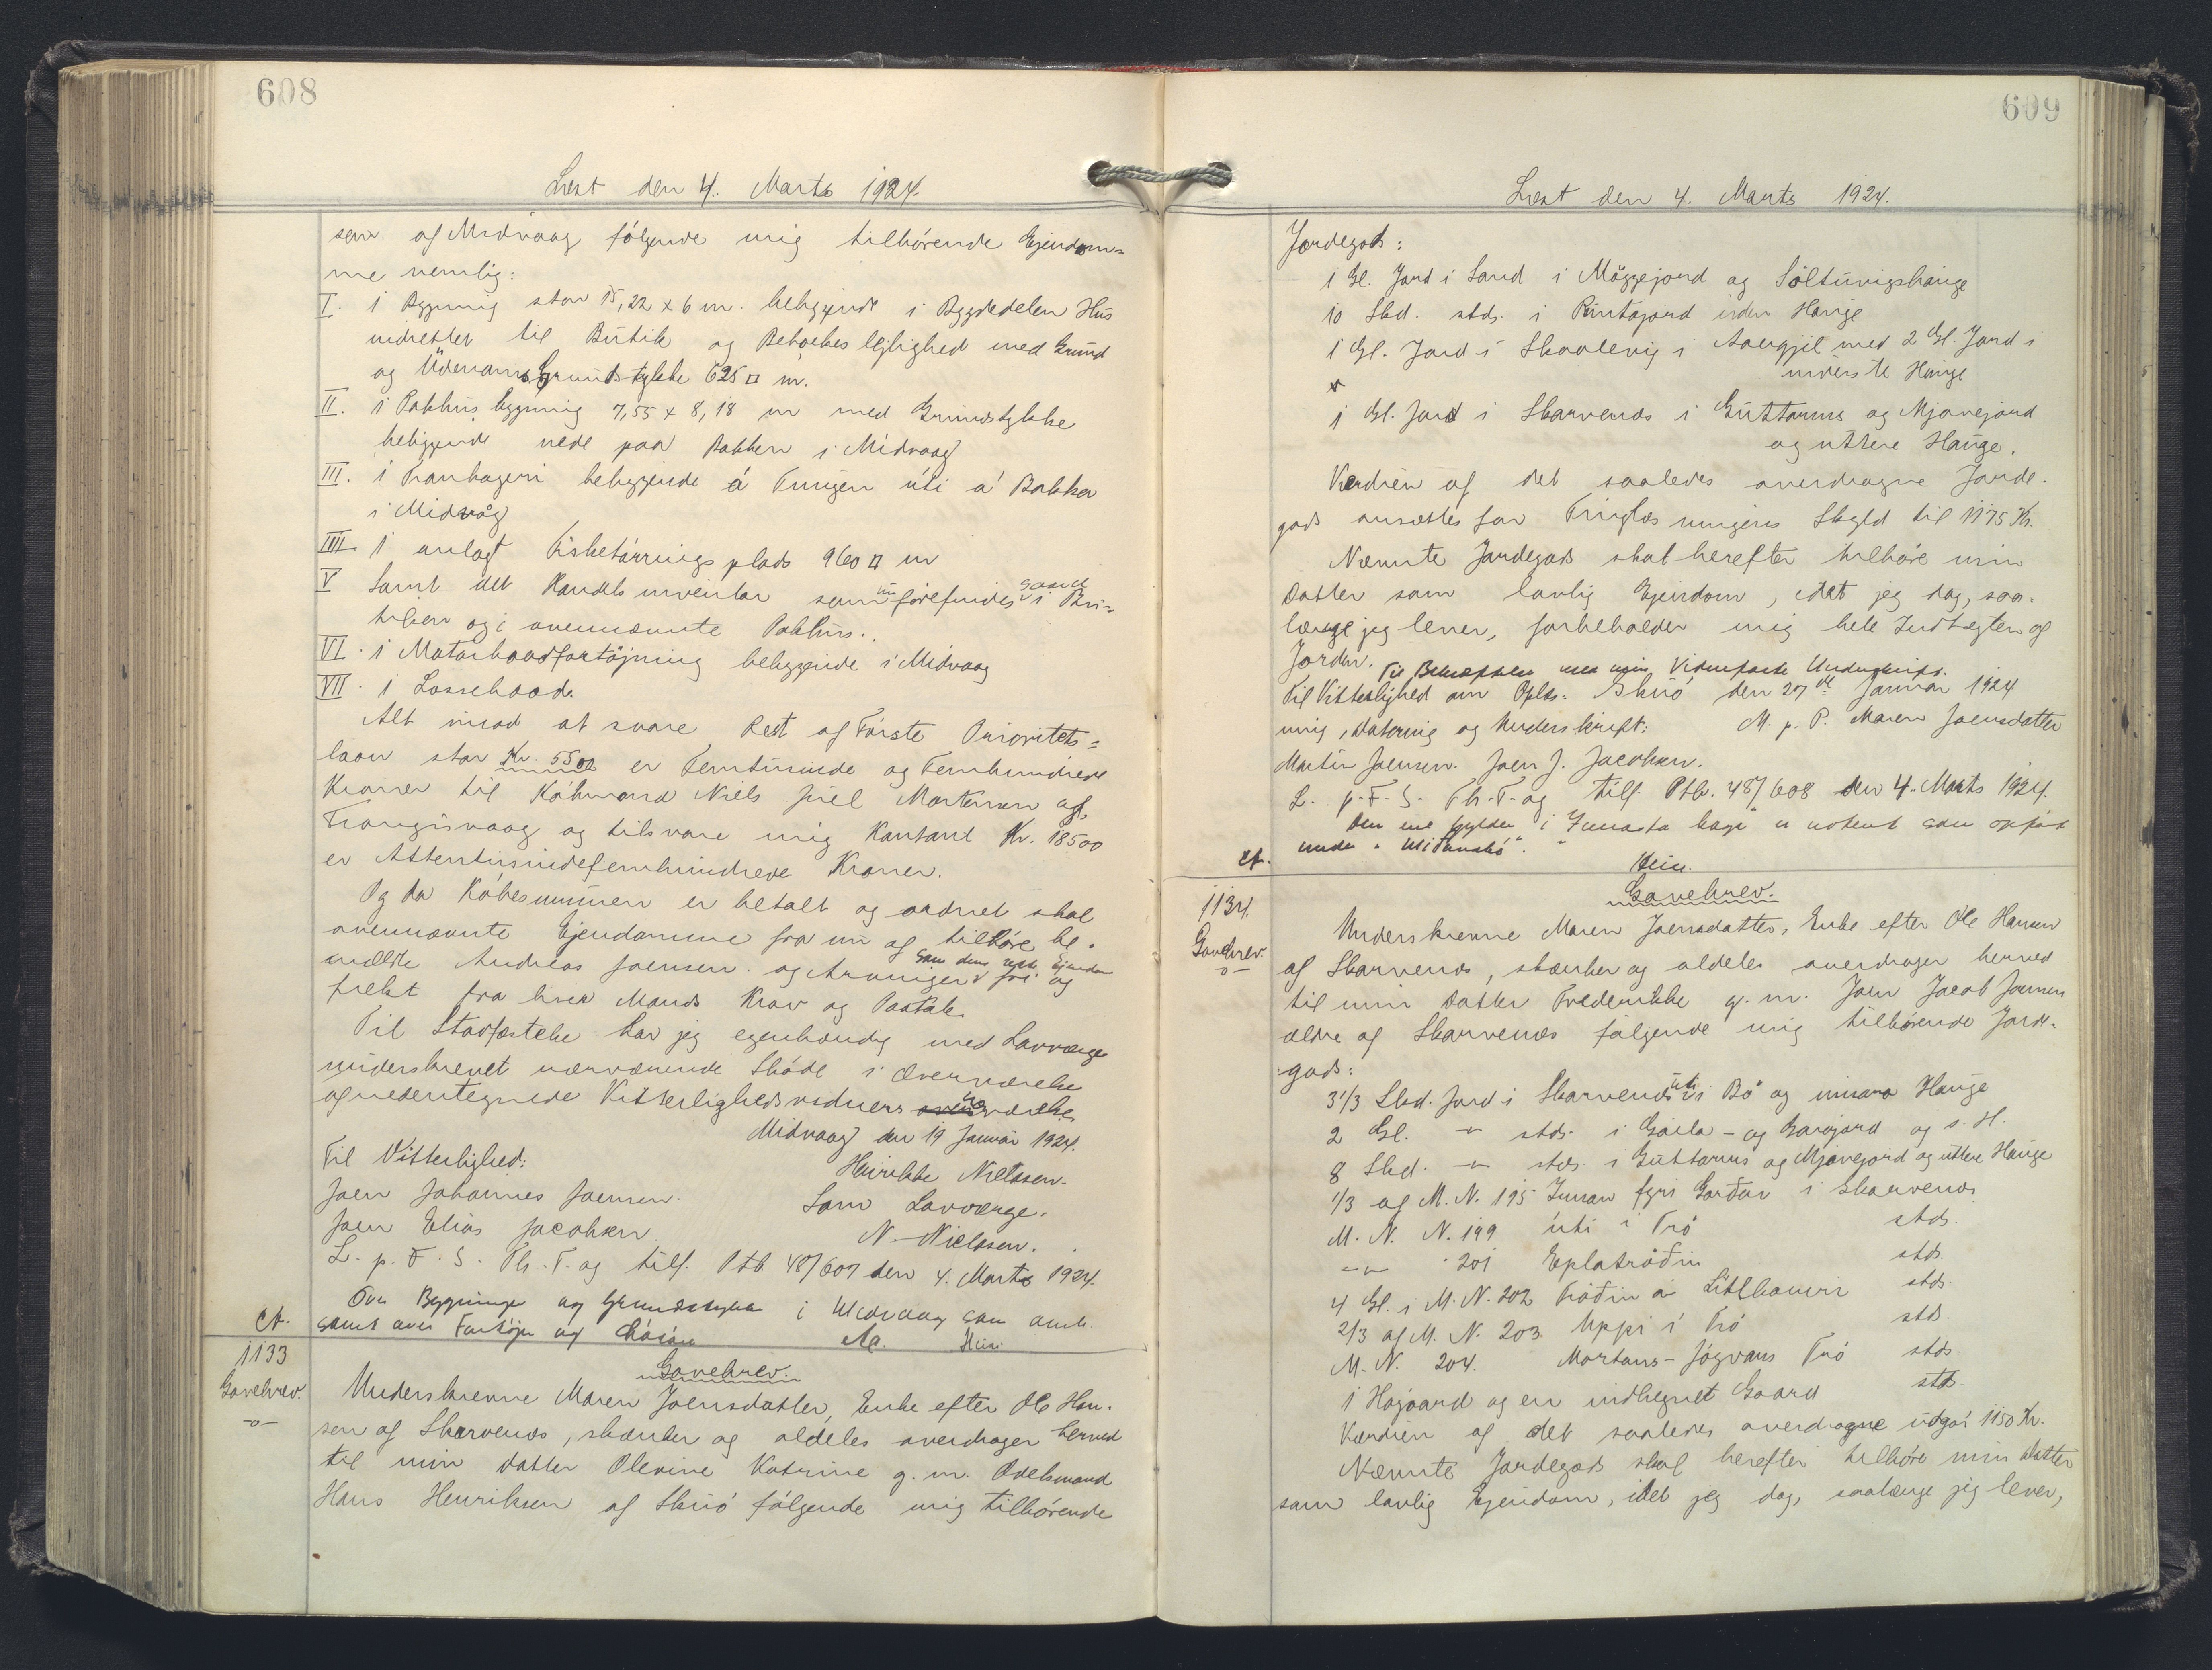 608
Læst den 4. Marts 1924.
sen af Midvaag følgende mig tilhørende Ejendom=
me nemlig:
I. 1 Bygning stor 15,22 x 6 m. beliggende i Bygdedelen Hus
indrettet til Butik og Beboelseslejlighed med Grund
og Udenoms Grundstykke 625 □ m.
II. 1 Pakhusbygning 7,55 x 8,18 m med Grundstykke
beliggende nede paa Bakken i Midvaag
III. 1 Tranbageri beliggende á Tungen úti á Bakka
i Midvåg
IIII 1 anlagt Fisketørringsplads 960 □ m
V Samt det Handelsinventar som nu forefindes saavel i Bu=
tiken og i ovennævnte Pakhus.
VI. 1 Motorbaadfortøjning beliggende i Midvaag
VII. 1 Lossebaad.
Alt imod at svare Rest af Første Prioritets=
laan stor Kr. 5500 er Femtusinde og Femhundrede
Kroner til Købmand Niels Juel Mortensen af
Trangisvaag og tilsvare mig Kontant Kr. 18500
er Attentusindefemhundrede Kroner.
Og da Købesummen er betalt og ordnet skal
ovennævnte Ejendomme fra nu af tilhøre be-
meldte Andreas Joensen og Arvinger som dens rette Ejendom fri og
frelst fra hver Mands Krav og Paatale.
Til Stadfæstelse har jeg egenhændig med Lavværge
underskrevet nærværende Skøde i Overværelse
af nedentegnede Vitterlighedsvidner
Midvaag den 19 Januar 1924.
Til Vitterlighed:
Henrikke Nielsen.
Joen Johannes Joensen.
Som Lavværge.
Joen Elias Jacobsen.
N. Nielsen.
L. p. F. S. Th. T. og tilf. Ptb. 48/607 den 4. Marts 1924.
Ovn Bygninger og Grundstykke i Midvaag som anf.
Ct.
samt over Fartøjer og Løsøre
1133
Gavebrev.
Gavebrev.
-o-
Underskrevne Maren Joensdatter, Enke efter Ole Han-
sen af Skarvenæs, skænker og aldeles overdrager herved
til min Datter Olevine Katrine g. m. Odelsmand
Hans Henriksen af Skuø følgende mig tilhørende
609
Læst den 4. Marts 1924.
Jordegods:
1 Gl. Jord i Sand i Møggjejord og Søltuvigshauge
10 Skd. stds. i Runtajord inden Hauge
1 Gl. Jord i Skaalevig i Aargjil med 2 Gl. Jord i
inderste Hauge
1 Gl. Jord i Skarvenæs i Guttarms og Mjavejord
og uttere Hauge.
Værdien af det saaledes overdragne Jorde-
gods ansættes for Tinglæsningens Skyld til 1175 Kr.
Nævnte Jordegods skal herefter tilhøre min
Datter som lovlig Ejendom, idet jeg dog, saa-
længe jeg lever, forbeholder mig hele Indtægten af
Jorden. Til Bekræftelse med min Vidnefaste Underskrift.
Til Vitterlighed om Oplæs- Skuø den 27de Januar 1924
ning, Datering og Underskrift: M. p. P. Maren Joensdatter
Martin Joensen. Joen J. Jacobsen.
L. p. F. S. Th. T. og tilf. Ptb. 48/608 den 4. Marts 1924.
Den ene Gylden i Innasta hage er noteret som opført
under "Midanbø".
Ct.
1134.
Gavebrev.
Gavebrev.
-o-
Underskrevne Maren Joensdatter, Enke efter Ole Hansen
af Skarvenæs, skænker og aldeles overdrager herved
til min Datter Frederikke g. m. Joen Jacob Joensen
ældre af Skarvenæs følgende mig tilhørende Jorde-
gods:
3 1/3 Skd. Jord i Skarvenæs úti i Bø og innara Hauge
2 Gl. -"- stds. i Gaila- og Garajord og s. H.
8 Skd. -"- stds. i Guttarms og Mjavejord og uttere Hauge
1/3 af M. N. 195 Innan fyri Garðar i Skarvenæs
M. N. N. 199 úti í Trø stds.
-"- 201 Eplatrøðin stds.
4 Gl. i M. N. 202 Trøðin á Litlhamri stds.
2/3 af M. N. 203 Uppi í Trø stds.
M. N. 204. Mortans-Jógvans Trø stds.
1 Hojgard og en indhegnet Gaard stds.
Værdien af det saaledes overdragne udgør 1150 Kr.
Nævnte Jordegods skal herefter tilhøre min Datter
som lovlig Ejendom, idet jeg dog, saalænge jeg lever,